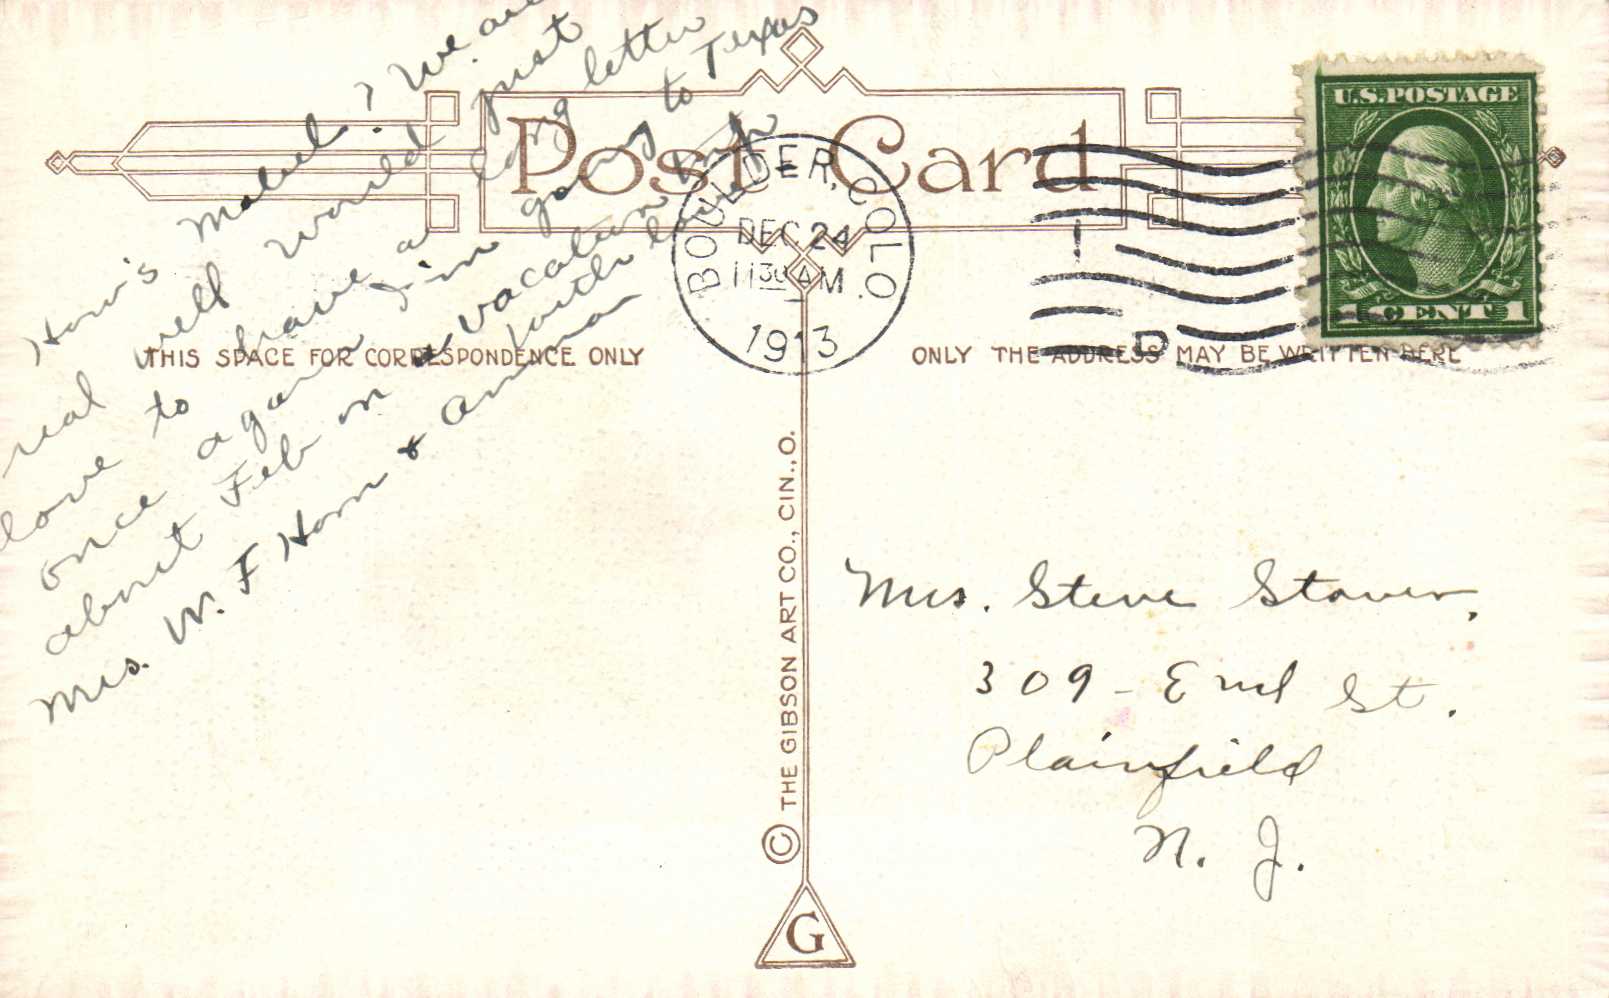 How's Mabel? We are
real well would just
love to have a long letter
once again Jim going to Texas
about Feb on a vacation trip
Mrs. W. F Horn &
Post Card
BOULDER, COLO.
DEC 24
11 30 AM
1913
D
U.S. POSTAGE
1 CENT 1
THIS SPACE FOR CORRESPONDENCE ONLY
ONLY THE ADDRESS MAY BE WRITTEN HERE
Mrs. Steve Stover,
309 - E 2nd St.
Plainfield
N. J.
© THE GIBSON ART CO., CIN., O.
G